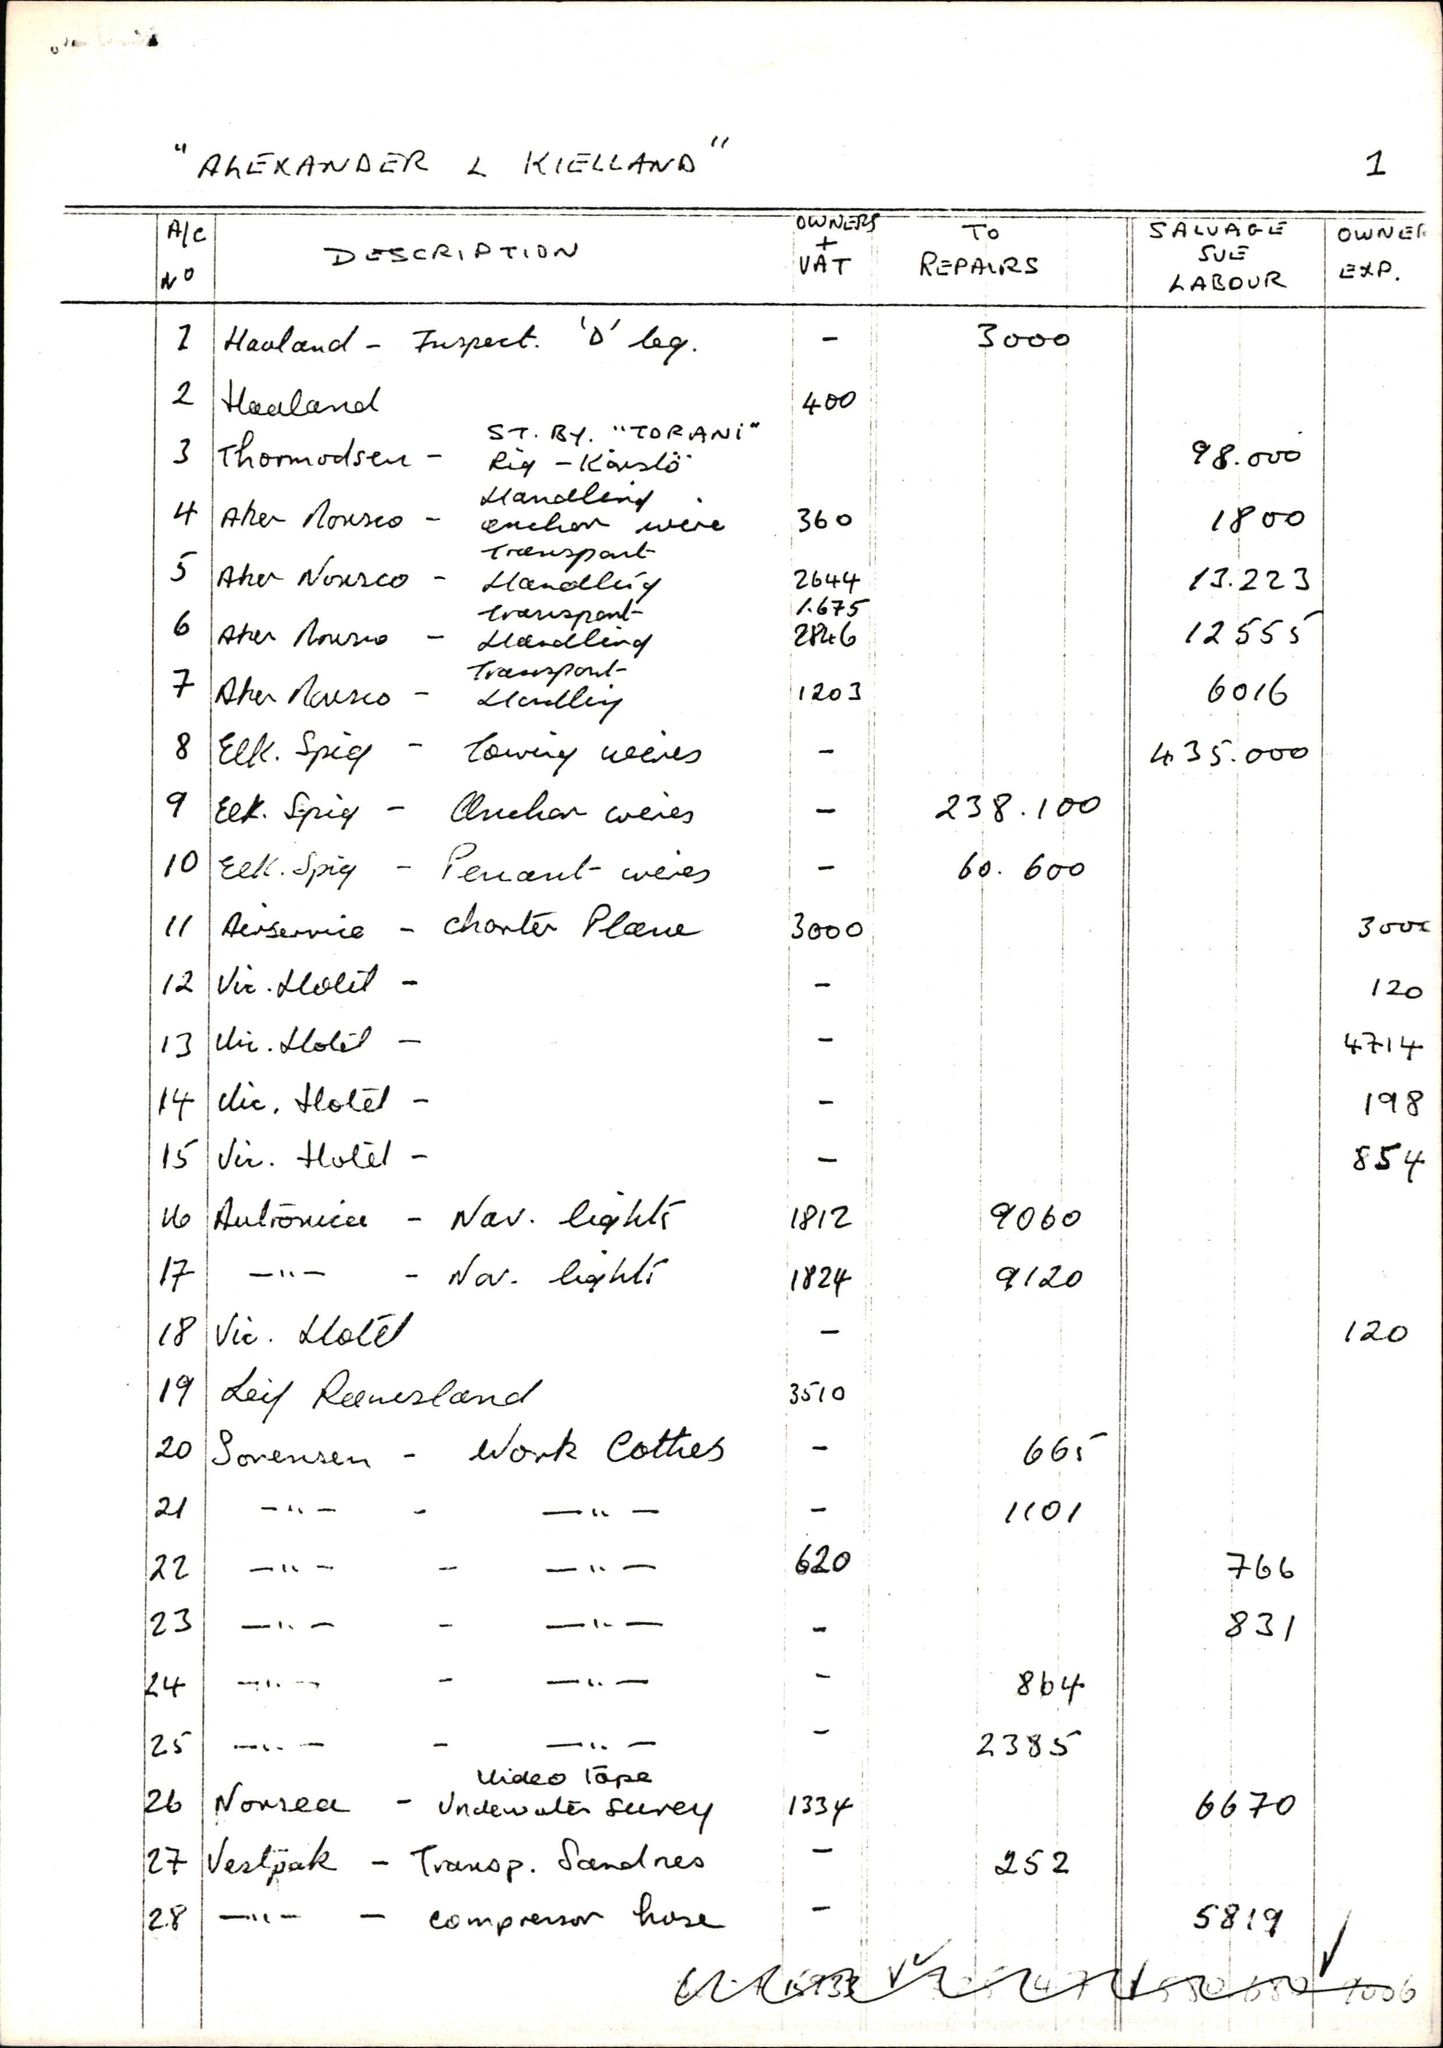 "ALEXANDER L KIELLAND" 1
A/C No DESCRIPTION OWNERS + VAT TO REPAIRS SALVAGE SUE LABOUR OWNER EXP.
1 Haaland - Inspect. 'D' leg. - 3000
2 Haaland 400
3 Thormodsen - ST. BY. "TORANI" Rig - Kårstö 98.000
4 Aker Norsco - Handling anchor wire 360 1800
5 Aker Norsco - Transport Handling 2644 13.223
6 Aker Norsco - Transport Handling 1.675 2846 12555
7 Aker Norsco - Transport Handling 1203 6016
8 Elk. Spig - Towing wires - 435.000
9 Elk. Spig - Anchor wires - 238.100
10 Elk. Spig - Penant wires - 60.600
11 Airservice - Charter Plane 3000 3000
12 Vic. Hotel - - 120
13 Vic. Hotel - - 4714
14 Vic. Hotel - - 198
15 Vic. Hotel - - 854
16 Autronica - Nav. lights 1812 9060
17 -"- - Nav. lights 1824 9120
18 Vic. Hotel - 120
19 Leif 3510
20 Sorensen - Work Cothes - 665
21 -"- - -"- - 1101
22 -"- - -"- 620 766
23 -"- - -"- - 831
24 -"- - -"- - 864
25 -"- - -"- - 2385
26 Norsea - Video Tape Underwater Survey 1334 6670
27 Vestpak - Transp. Sandnes - 252
28 -"- - compressor hose - 5819
9006